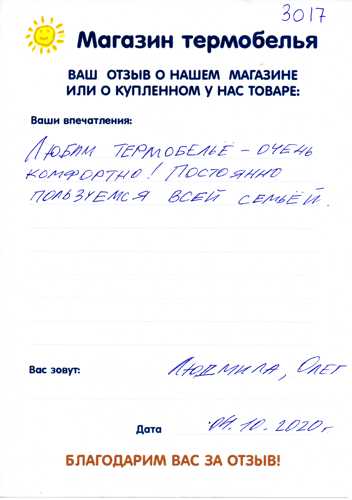 3017
Магазин термобелья
ВАШ ОТЗЫВ О НАШЕМ МАГАЗИНЕ
ИЛИ О КУПЛЕННОМ У НАС ТОВАРЕ:
Ваши впечатления:
ЛЮБИМ ТЕРМОБЕЛЬЁ - ОЧЕНЬ
КОМФОРТНО! ПОСТОЯННО
ПОЛЬЗУЕМСЯ ВСЕЙ СЕМЬЁЙ.
Вас зовут: ЛЮДМИЛА, ОЛЕГ
Дата 04.10.2020г
БЛАГОДАРИМ ВАС ЗА ОТЗЫВ!